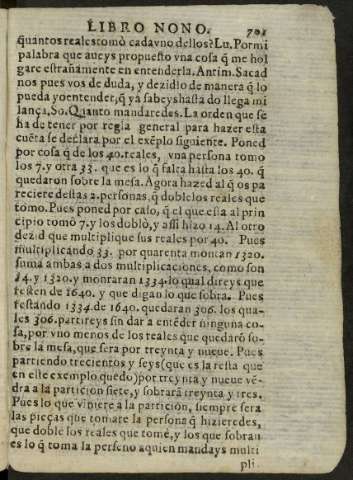 LIBRO NONO. 701
quantos reales tomò cada vno dellos? Lu. Por mi
palabra que aueys propuesto vna cosa q̃ me hol
gare estrañamente en entenderla. Antim. Sacad
nos pues vos de duda, y dezidlo de manera q̃ lo
pueda yo entender, q̃ ya sabeys hasta do llega mi
lança. So. Quanto mandaredes. La orden que se
ha de tener por regla general para hazer esta
cuẽta se declara por el exẽplo siguiente. Poned
por cosa q̃ de los 40. reales, vna persona tomo
los 7. y otra 33. que es lo q̃ falta hasta los 40. q̃
quedaron sobre la mesa. Agora hazed al q̃ os pa
reciere destas 2. personas, q̃ doble los reales que
tomo. Pues poned por caso, q̃ el que està al prin
cipio tomò 7. y los doblò, y assi hizo 14. Al otro
dezid que multiplique sus reales por 40. Pues
multiplicando 33. por quarenta montan 1320.
suma ambas a dos multiplicaciones, como son
14. y 1320. y montaran 1334. lo qual direys que
resten de 1640. y que digan lo que sobra. Pues
restando 1334. de 1640. quedaran 306. los qua-
les 306. partireys sin dar a entẽder ninguna co-
sa, por vno menos de los reales que quedarõ so-
bre la mesa, que sera por treynta y nueue. Pues
partiendo trecientos y seys (que es la resta que
en este exemplo quedo) por treynta y nueue vẽ-
dra a la particion siete, y sobrarà treynta y tres.
Pues lo que viniere a la particion, siempre sera
las pieças que tomare la persona q̃ hizieredes,
que doble los reales que tomé, y los que sobran
es lo q̃ toma la persona a quien mandays multi
pli-